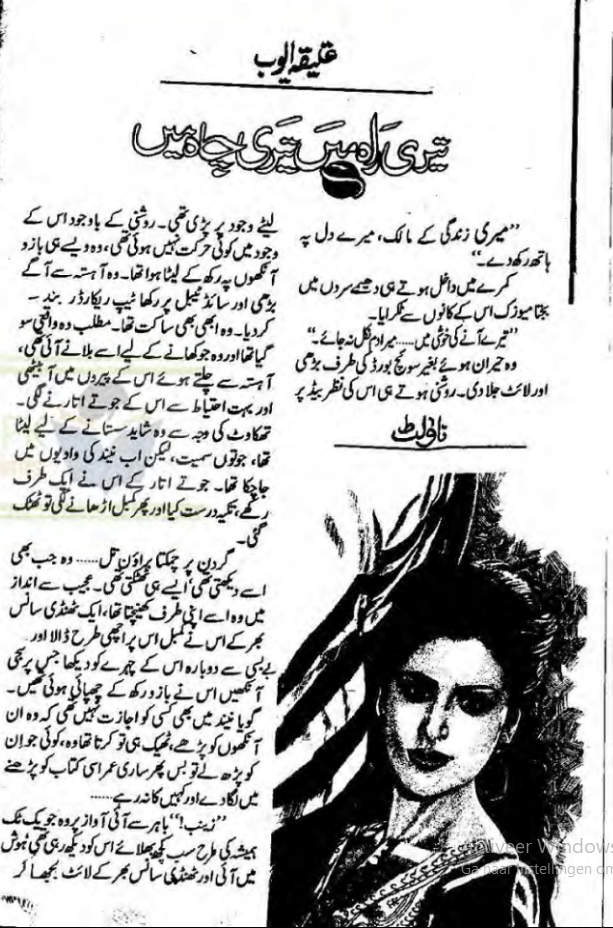 عتیقہ ایوب
تیری راہ میں تیری چاہ میں
”میری زندگی کے مالک، میرے دل پہ
ہاتھ رکھ دے۔“
کمرے میں داخل ہوتے ہی دھیمے سروں میں
بجتا میوزک اس کے کانوں سے ٹکرایا۔
”تیرے آنے کی خوشی میں..... میرا دم نکل نہ جائے۔“
وہ حیران ہوئے بغیر سوئچ بورڈ کی طرف بڑھی
اور لائٹ جلا دی۔ روشنی ہوتے ہی اس کی نظر بیڈ پر
ناولٹ
لیٹے وجود پر پڑی تھی۔ روشنی کے باوجود اس کے
وجود میں کوئی حرکت نہیں ہوئی تھی، وہ ویسے ہی بازو
آنکھوں پہ رکھ کے لیٹا ہوا تھا۔ وہ آہستہ سے آگے
بڑھی اور سائڈ ٹیبل پر رکھا ٹیپ ریکارڈر بند
کر دیا۔ وہ ابھی بھی ساکت تھا۔ مطلب وہ واقعی سو
گیا تھا اور وہ جو کھانے کے لیے اسے بلانے آئی تھی،
آہستہ سے چلتے ہوئے اس کے پیروں میں آ بیٹھی
اور بہت احتیاط سے اس کے جوتے اتارنے لگی۔
تھکاوٹ کی وجہ سے وہ شاید سستانے کے لیے لیٹا
تھا، جوتوں سمیت، لیکن اب نیند کی وادیوں میں
جا چکا تھا۔ جوتے اتار کے اس نے ایک طرف
رکھے، تکیہ درست کیا اور پھر کمبل اڑھانے لگی تو ٹھٹک
گئی۔
گردن پر چمکتا براؤن تل..... وہ جب بھی
اسے دیکھتی تھی ایسے ہی ٹھٹکتی تھی۔ عجیب سے انداز
میں وہ اسے اپنی طرف کھینچتا تھا، ایک ٹھنڈی سانس
بھر کے اس نے کمبل اس پر اچھی طرح ڈالا اور
بے بسی سے دوبارہ اس کے چہرے کو دیکھا جس پر سجی
آنکھیں اس نے بازو رکھ کے چھپائی ہوئی تھیں۔
گویا نیند میں بھی کسی کو اجازت نہیں تھی کہ وہ ان
آنکھوں کو پڑھے، ٹھیک ہی تو کرتا تھا وہ، کوئی جو ان
کو پڑھ لے تو بس پھر ساری عمر اسی کتاب کو پڑھنے
میں لگا دے اور کہیں کا نہ رہے.....
”زینب!“ باہر سے آئی آواز پر وہ جو یک ٹک
ہمیشہ کی طرح سب کچھ بھلائے اس کو دیکھ رہی تھی ہوش
میں آئی اور ٹھنڈی سانس بھر کے لائٹ بجھا کر
Windows
Ga naar instellingen om